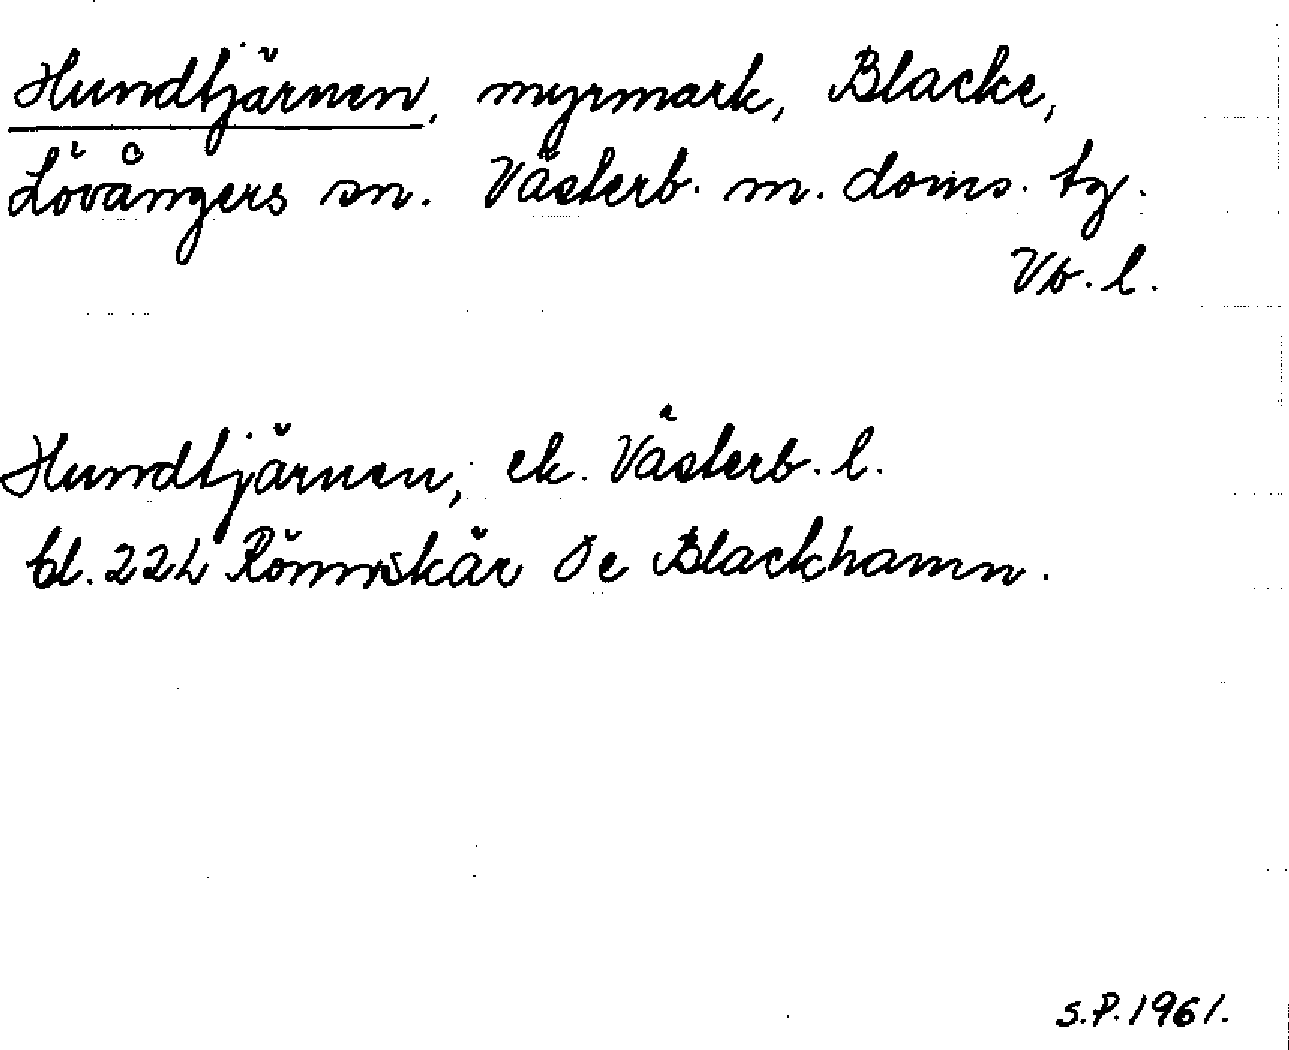 Hundtjärnen, myrmark, Blacke,
Lövångers sn. Västerb. m. doms. tg.
Vb. l.
Hundtjärnen, ek. Västerb. l.
bl. 22L Rönnskär 5e Blackhamn.
S.P. 1961.